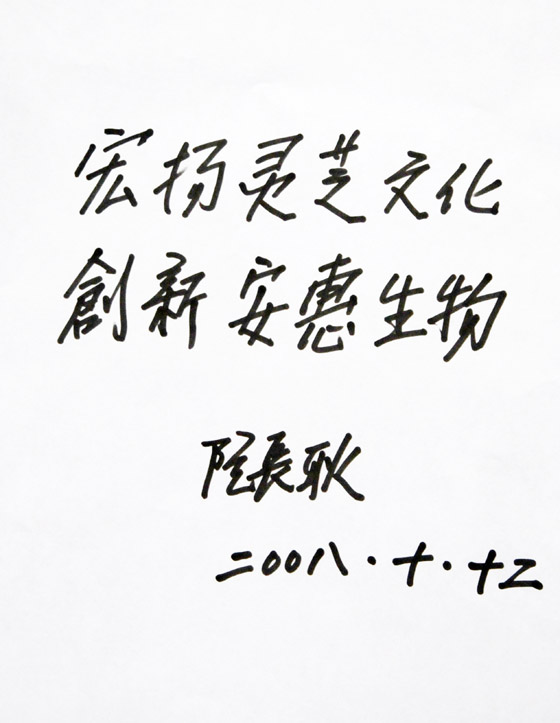 宏扬灵芝文化
創新安惠生物
陸長耿
二〇〇八·十·十二